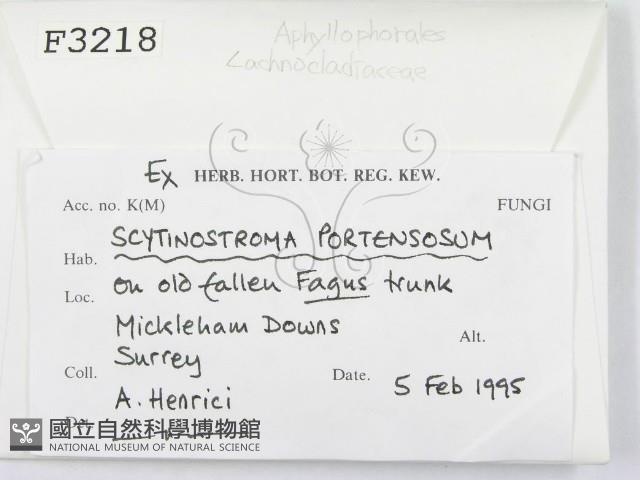 F3218
Aphyllophorales
Lachnocladiaceae
Ex HERB. HORT. BOT. REG. KEW.
Acc. no. K(M) FUNGI
SCYTINOSTROMA PORTENSOSUM
Hab. on old fallen Fagus trunk
Loc. Mickleham Downs
Surrey Alt.
Coll. A. Henrici Date. 5 Feb 1995
國立自然科學博物館
NATIONAL MUSEUM OF NATURAL SCIENCE